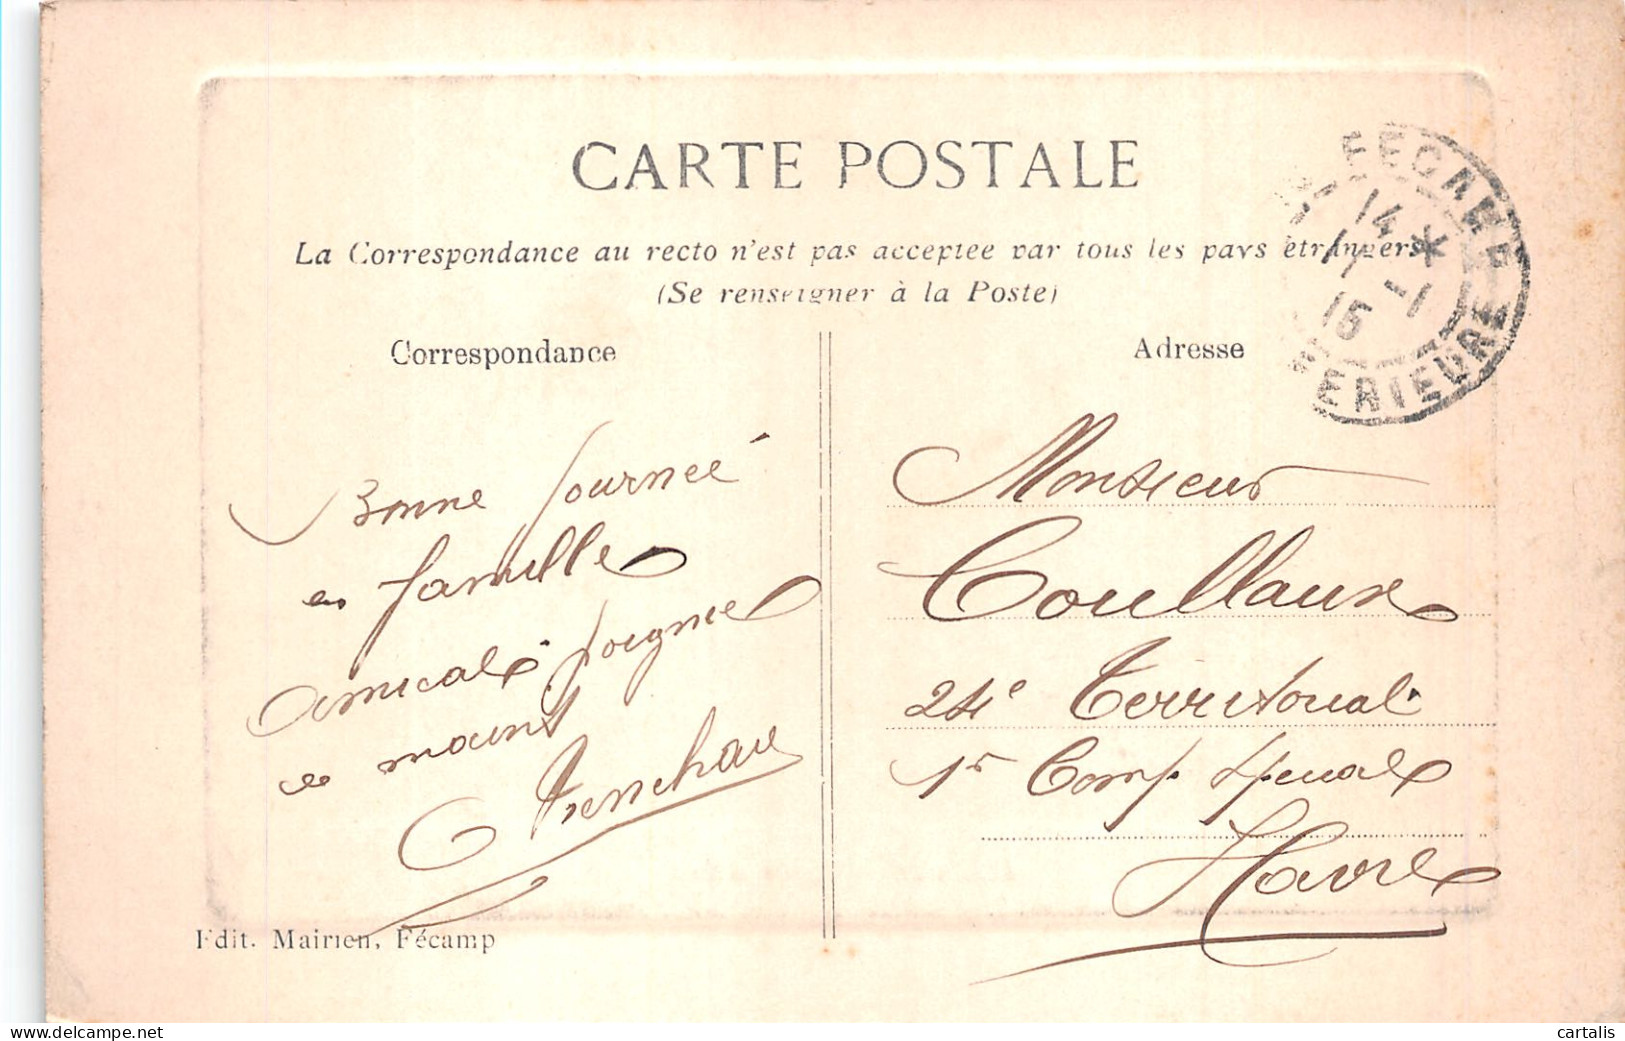 CARTE POSTALE
La Correspondance au recto n'est pas acceptee par tous les pays etrangers
(Se renseigner à la Poste)
Correspondance
Adresse
FECAMP
14 *
15 -1
ERIEURE
Bonne journeé
en famille
amical soigne
main
Monsieur
Coullaux
24e Territorial
1r Comp. Speciale
Havre
Edit. Mairien, Fécamp
cartalis
delcampe.net